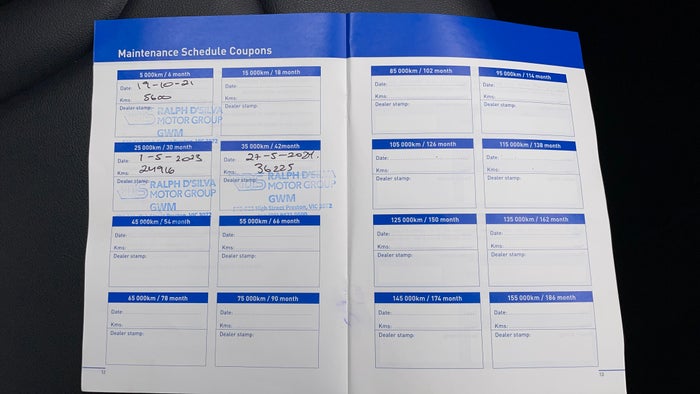 Maintenance Schedule Coupons
5 000km / 6 month
Date: 19-10-21
Kms: 5600
Dealer stamp:
RALPH D'SILVA
MOTOR GROUP
GWM
15 000km / 18 month
Date:
Kms:
Dealer stamp:
25 000km / 30 month
Date: 1-5-2023
Kms: 24916
Dealer stamp:
RALPH D'SILVA
MOTOR GROUP
GWM
35 000km / 42month
Date: 27-5-2024.
Kms: 36225
Dealer stamp:
RALPH D'SILVA
MOTOR GROUP
GWM
High Street Preston, VIC 3072
45 000km / 54 month
Date:
Kms:
Dealer stamp:
55 000km / 66 month
Date:
Kms:
Dealer stamp:
65 000km / 78 month
Date:
Kms:
Dealer stamp:
75 000km / 90 month
Date:
Kms:
Dealer stamp:
12
85 000km / 102 month
Date:
Kms:
Dealer stamp:
95 000km / 114 month
Date:
Kms:
Dealer stamp:
105 000km / 126 month
Date:
Kms:
Dealer stamp:
115 000km / 138 month
Date:
Kms:
Dealer stamp:
125 000km / 150 month
Date:
Kms:
Dealer stamp:
135 000km / 162 month
Date:
Kms:
Dealer stamp:
145 000km / 174 month
Date:
Kms:
Dealer stamp:
155 000km / 186 month
Date:
Kms:
Dealer stamp:
13